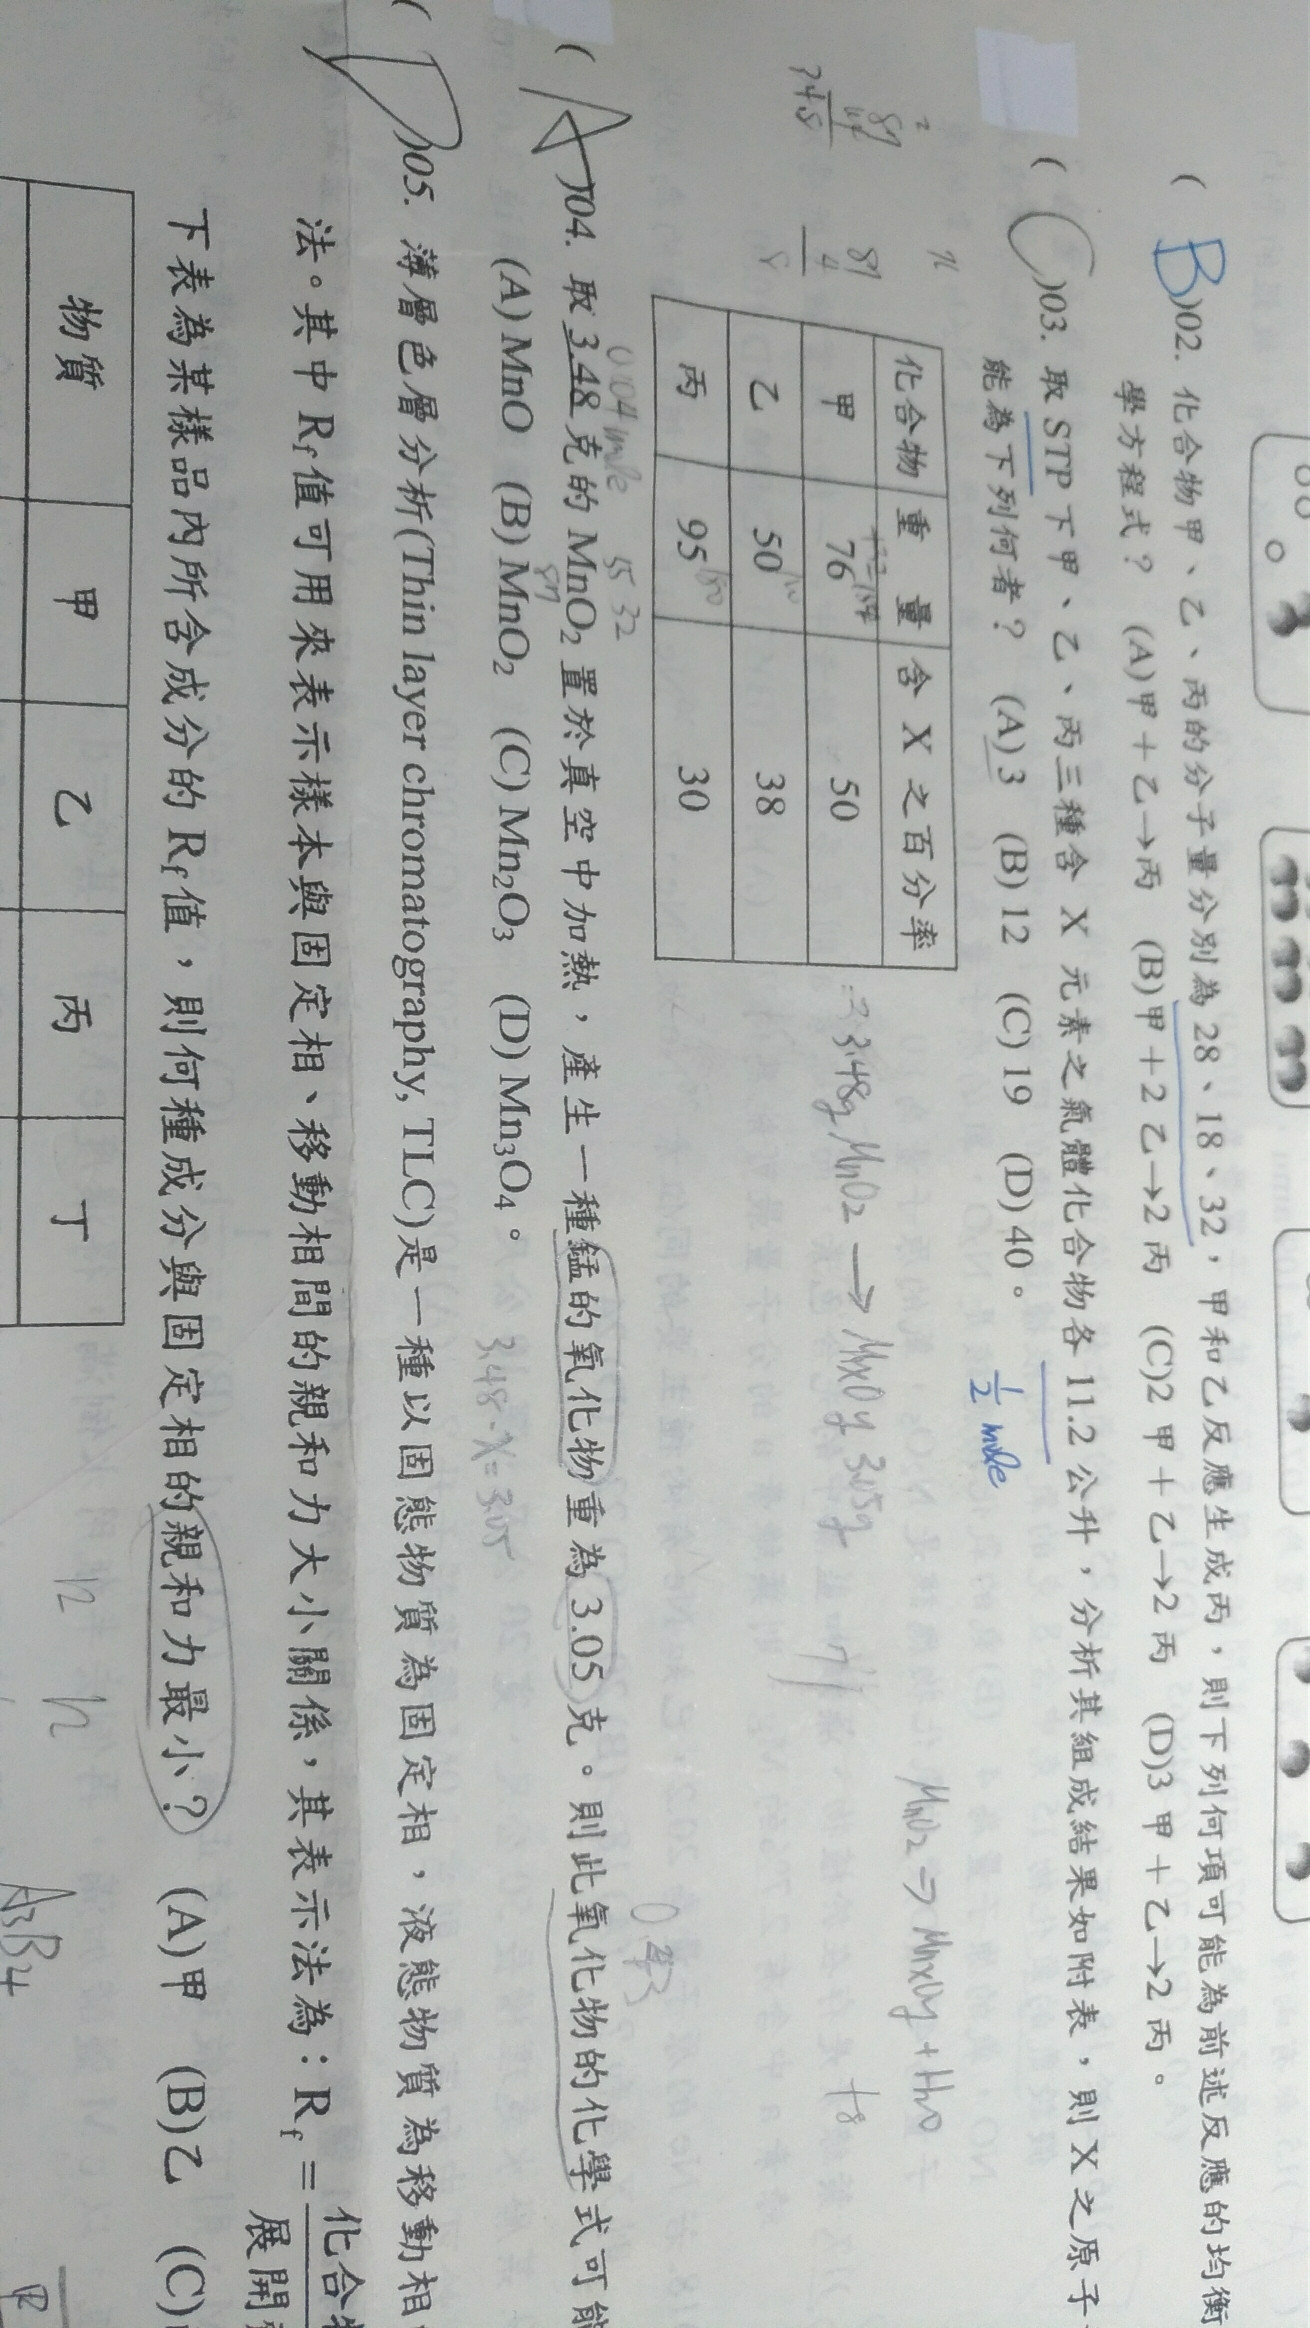 (B)02. 化合物甲、乙、丙的分子量分別為 28、18、32,甲和乙反應生成丙,則下列何項可能為前述反應的均衡
學方程式? (A)甲+乙→丙 (B)甲+2乙→2丙 (C)2甲+乙→2丙 (D)3甲+乙→2丙。
(C)03. 取 STP 下甲、乙、丙三種含 X 元素之氣體化合物各 11.2 公升,分析其組成結果如附表,則 X 之原子
能為下列何者? (A)3 (B)12 (C)19 (D)40。
1/2 mole
化合物 重量 含 X 之百分率
甲 76 50
乙 50 38
丙 95 30
MnO2 ⇒ MnxOy + H2O
3.48g MnO2 → MnxOy 3.05g
0.04 mole
55 32
0.43
(A)04. 取 3.48 克的 MnO2 置於真空中加熱,產生一種錳的氧化物重為 3.05 克。則此氧化物的化學式可能
87
(A) MnO (B) MnO2 (C) Mn2O3 (D) Mn3O4。
3.48-X=3.05
(D)05. 薄層色層分析(Thin layer chromatography, TLC)是一種以固態物質為固定相,液態物質為移動相
法。其中 Rf 值可用來表示樣本與固定相、移動相間的親和力大小關係,其表示法為:Rf = 化合 展開
下表為某樣品內所含成分的 Rf 值,則何種成分與固定相的親和力最小? (A)甲 (B)乙 (C)
物質 甲 乙 丙 丁
A3B4